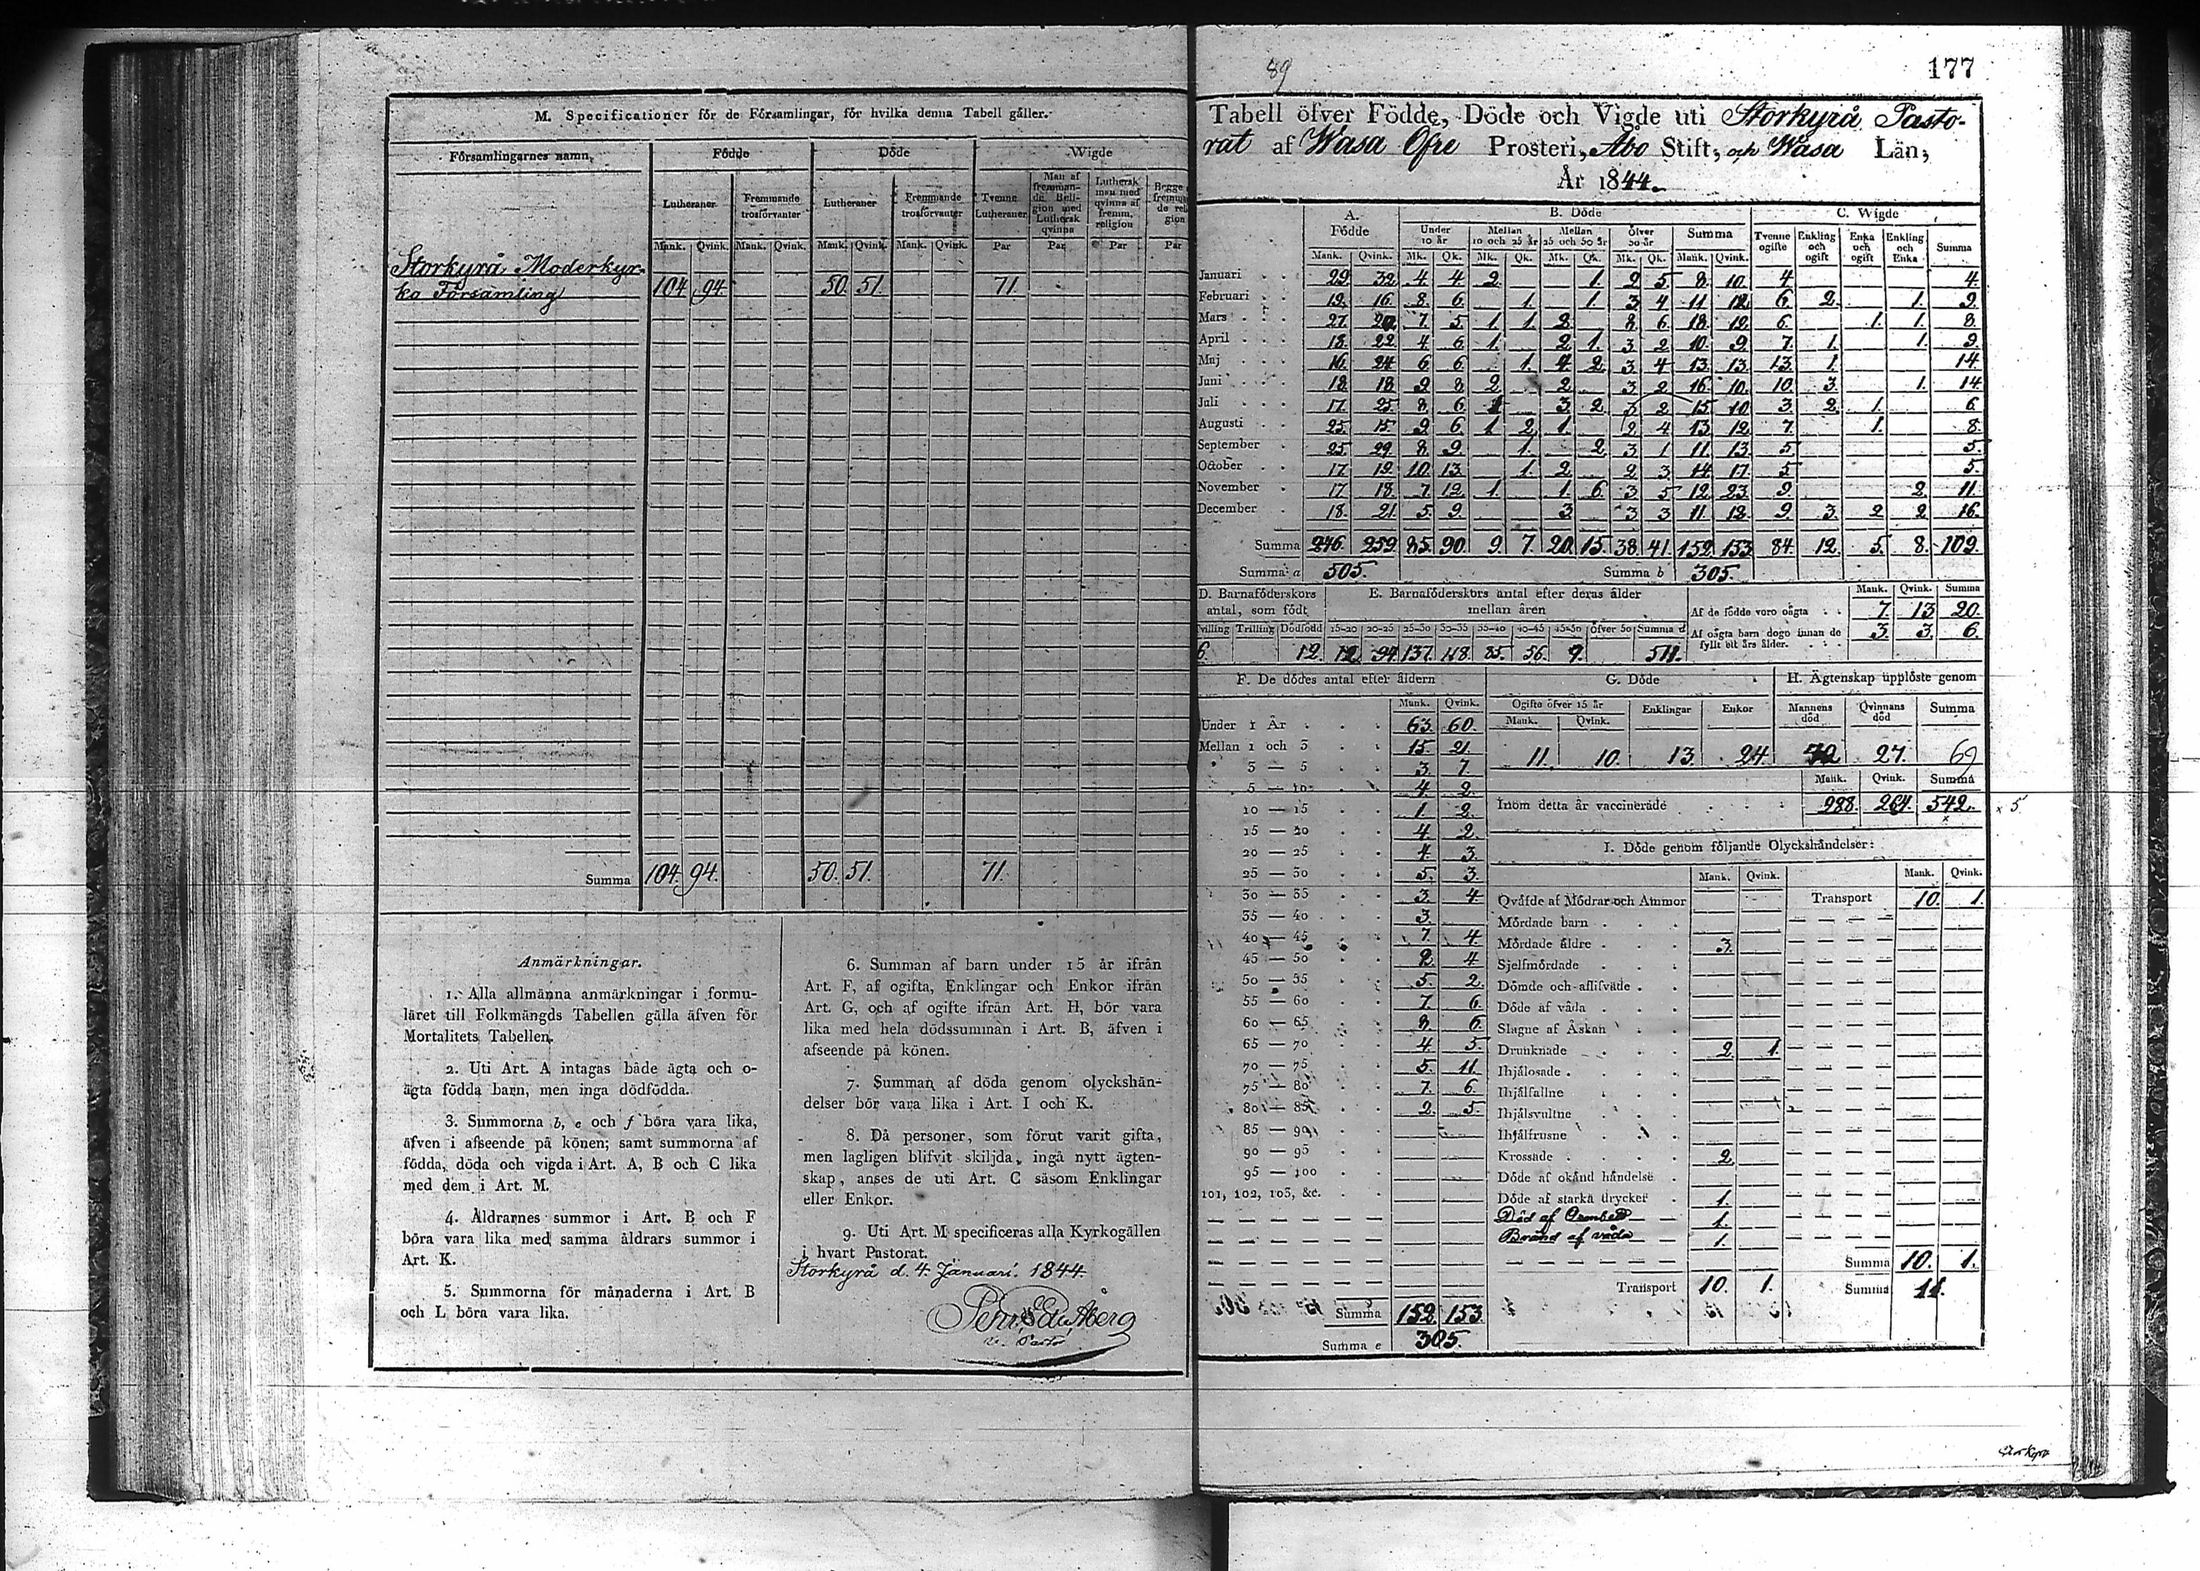 M. Specificationer för de Församlingar, för hvilka denna Tabell gäller.
Församlingarnes namn. Födde Döde Wigde
Lutheraner Fremmande trosförvanter Lutheraner Fremmande trosförvanter Tvenne Lutheraner Man af fremmande Religion med Luthersk qvinna Luthersk man med qvinna af fremm. religion Begge
Mank. Qvink. Mank. Qvink. Mank. Qvink. Mank. Qvink. Par Par Par Par
Storkyrå Moderkyr-
ko Församling 104. 94. 50. 51. 71.
Summa 104. 94. 50. 51. 71.
Anmärkningar.
1. Alla allmänna anmärkningar i formu-
läret till Folkmängds Tabellen gälla äfven för
Mortalitets Tabellen.
2. Uti Art. A intagas både ägta och o-
ägta födda barn, men inga dödfödda.
3. Summorna b, e och f böra vara lika,
äfven i afseende på könen; samt summorna af
födda, döda och vigda i Art. A, B och C lika
med dem i Art. M.
4. Åldrarnes summor i Art. B och F
böra vara lika med samma åldrars summor i
Art. K.
5. Summorna för månaderna i Art. B
och L böra vara lika.
6. Summan af barn under 15 år ifrån
Art. F, af ogifta, Enklingar och Enkor ifrån
Art. G, och af ogifte ifrån Art. H, bör vara
lika med hela dödssumman i Art. B, äfven i
afseende på könen.
7. Summan af döda genom olyckshän-
delser bör vara lika i Art. I och K.
8. Då personer, som förut varit gifta,
men lagligen blifvit skiljda, ingå nytt ägten-
skap, anses de uti Art. C såsom Enklingar
eller Enkor.
9. Uti Art. M specificeras alla Kyrkogällen
i hvart Pastorat.
Storkyrå d. 4. Januari. 1844.
89
177
Tabell öfver Födde, Döde och Vigde uti Storkyrå Pasto-
rat af Wasa Öfre Prosteri, Åbo Stift, och Wasa Län,
År 1844.
A. Födde B. Döde C. Wigde
Under 10 år Mellan 10 och 25 år Mellan 25 och 50 år Öfver 50 år Summa Tvenne ogifte Enkling och ogift Enka och ogift Enkling och Enka Summa
Mank. Qvink. Mk. Qk. Mk. Qk. Mk. Qk. Mk. Qk. Mank. Qvink.
Januari 29. 32. 4. 4. 2. 1. 2. 5. 8. 10. 4. 4.
Februari 19. 16. 8. 6. 1. 1. 3. 4. 11. 12. 6. 2. 1. 9.
Mars 27. 20. 7. 5. 1. 1. 2. 8. 6. 18. 12. 6. 1. 1. 8.
April 18. 22. 4. 6. 1. 2. 1. 3. 2. 10. 9. 7. 1. 1. 9.
Maj 16. 24. 6. 6. 1. 4. 2. 3. 4. 13. 13. 13. 1. 14.
Juni 18. 18. 9. 8. 2. 2. 3. 2. 16. 10. 10. 3. 1. 14.
Juli 17. 25. 8. 6. 1 3. 2. 3 2 15. 10. 3. 2. 1. 6.
Augusti 25. 15. 9. 6. 1 2. 1. 2 4 13. 12. 7. 1. 8.
September 25. 29. 8. 9. 1. 2. 3 1 11. 13. 5. 5.
October 17. 19. 10. 13. 1. 2. 2 3. 14. 17. 5. 5.
November 17. 18. 7. 12. 1. 1. 6. 3 5. 12. 23. 9. 2. 11.
December 18. 21. 5. 9. 3. 3 3. 11. 12. 9. 3. 2. 2 16.
Summa 246. 259. 85. 90. 9. 7. 20. 15. 38. 41. 152. 153. 84. 12. 5. 8. 109.
Summa a 505. Summa b 305.
D. Barnaföderskors antal, som födt E. Barnaföderskors antal efter deras ålder mellan åren Mank. Qvink. Summa
Af de födde voro oägta 7. 13. 20.
Af oägta barn dogo innan de fyllt ett års ålder. 3. 3. 6.
Tvilling Trilling Dödfödd 15-20 20-25 25-30 30-35 35-40 40-45 45-50 Öfver 50 Summa d
6. 12. 12. 94. 137. 118. 85. 56. 9. 511.
F. De dödes antal efter åldern
Mank. Qvink.
Under 1 År 63. 60.
Mellan 1 och 3 15. 21.
3 — 5 3. 7.
5 — 10 4. 2.
10 — 15 1. 2.
15 — 20 4. 2.
20 — 25 4. 3.
25 — 30 5. 3.
30 — 35 3. 4.
35 — 40 3.
40 — 45 7. 4.
45 — 50 2. 4
50 — 55 5. 2.
55 — 60 7. 6.
60 — 65 8. 6.
65 — 70 4. 5.
70 — 75 5. 11.
75 — 80 7. 6.
80 — 85 2. 5.
85 — 90
90 — 95
95 — 100
101, 102, 103, &c.
Summa 152. 153.
Summa e 305.
G. Döde H. Ägtenskap upplöste genom
Ogifte öfver 15 år Enklingar Enkor Mannens död Qvinnans död Summa
Mank. Qvink.
11. 10. 13. 24. 42 27. 69
Mank. Qvink. Summa
Inom detta år vaccinerade 288. 264. 542. × 5
I. Döde genom följande Olyckshändelser:
Mank. Qvink. Mank. Qvink.
Qväfde af Mödrar och Ammor Transport 10. 1.
Mördade barn
Mördade äldre 3.
Sjelfmördade
Dömde och aflifvade
Döde af våda
Slagne af Åskan
Drunknade 2. 1.
Ihjälosade
Ihjälfallne
Ihjälsvultne
Ihjälfrusne
Krossade 2.
Döde af okänd händelse
Döde af starka drycker 1.
Död af 1.
Bränd af våda 1.
Summa 10. 1.
Transport 10. 1. Summa 11.